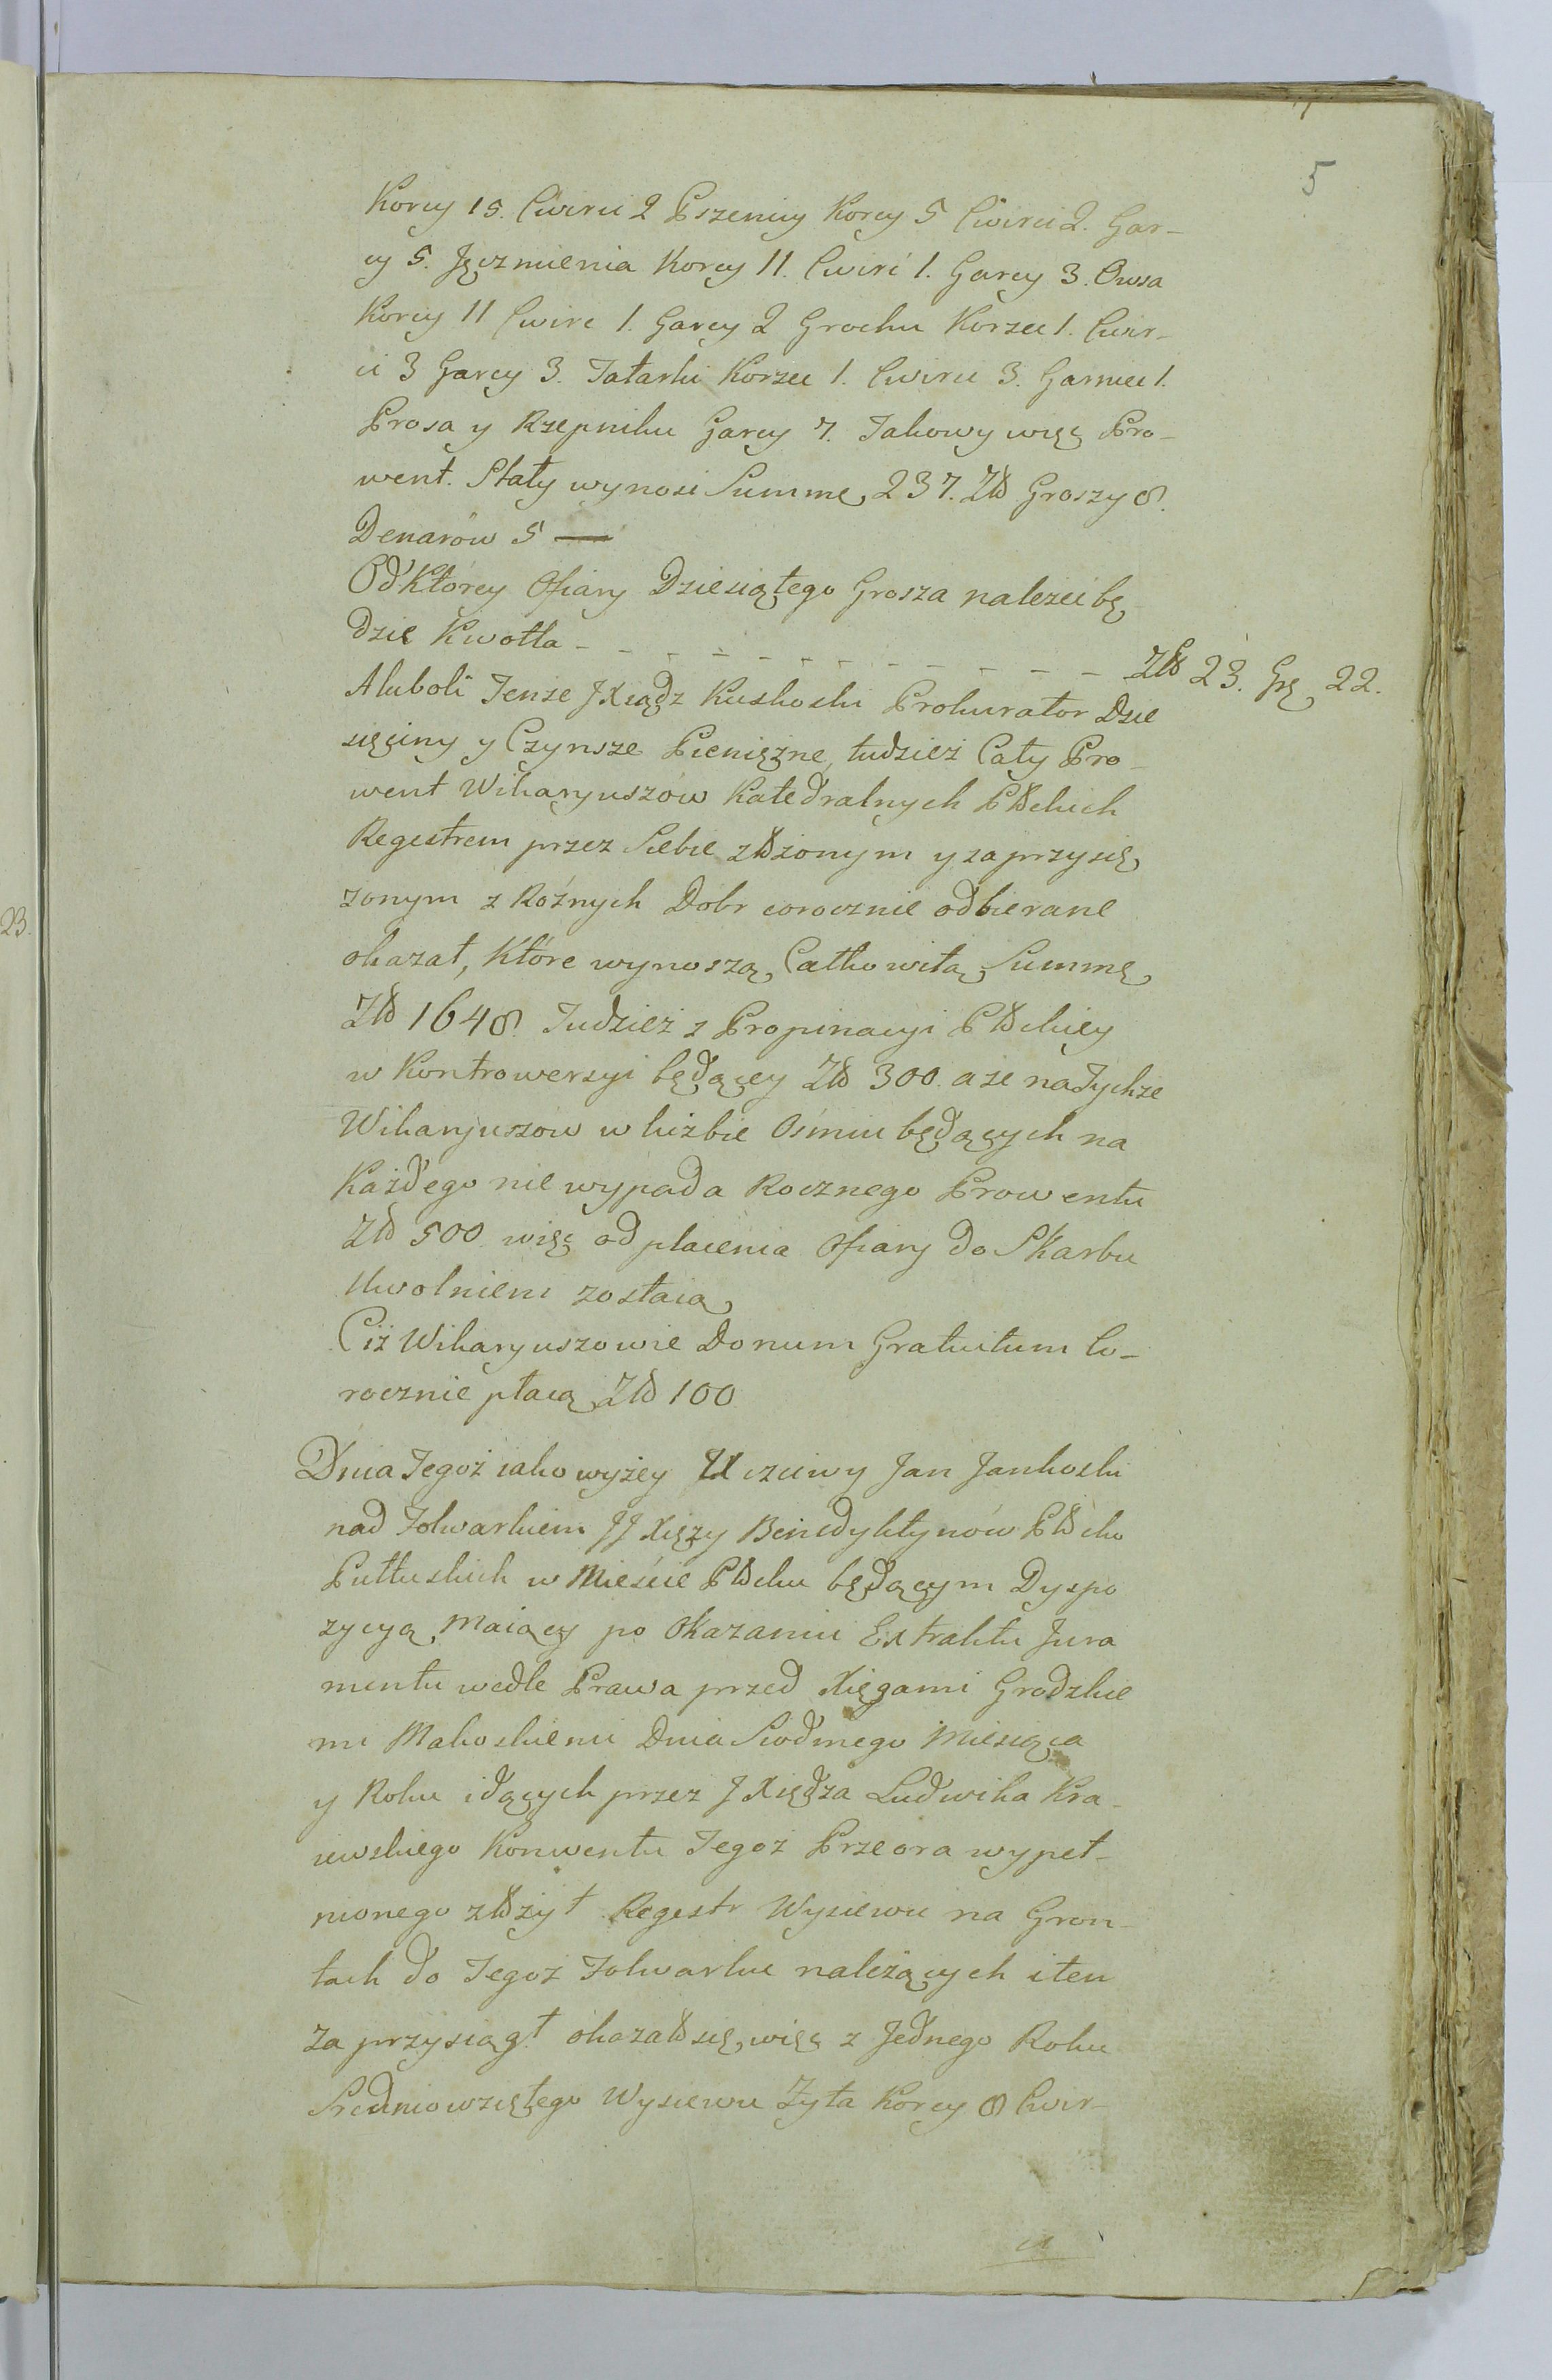 5
Korcy 15. Cwirci 2 Pszenicy Korcy 5 Cwirci 2. Gar-
cy 5. Jęczmienia Korcy 11. Cwirć 1. Garcy 3. Owsa
Korcy 11 Cwirc 1. Garcy 2 Grochu Korzec 1. Cwir-
ci 3 Garcy 3. Tatarki Korzec 1. Cwirci 3. Garniec 1.
Prosa y Rzepniku Garcy 7. Takowy więc Pro-
went. Stały wynosi Summę 237. Zł Groszy 8.
Denarów 5 —
Od Którey Ofiary Dziesiątego Grosza należeć bę-
dzie Kwotta - - - - - - - - - - - - Zł 23. Gr 22.
Aluboli Tenże JXsiądz Kuskoski Prokurator Dzie
sięciny y Czynsze Pieniężne, tudzież Cały Pro-
went Wikaryuszów Katedralnych Płckich
Regestrem przez Siebie złżonym y zaprzysię
żonym z Rożnych Dobr corocznie odbierane
okazał, Które wynoszą Całkowitą Summę
Zł 1648. Tudzież z Propinacyi Płckiey
w Kontrowersyi będącey Zł 300. a że na Tychże
Wikaryuszow w liczbie Ośmiu będących na
Każdego nie wypada Rocznego Prowentu
Zł 500. więc od płacenia Ofiary do Skarbu
Uwolnieni zostaią
Ciż Wikaryuszowie Donum Gratuitum Co-
rocznie płacą Zł 100
Dnia Tegoż iako wyżey Uczciwy Jan Jankoski
nad Folwarkiem JJ Xięży Benedyktynów Płcko
Pułtuskich w Mieście Płcku będącym Dyspo
zycyą Maiący po Okazaniu Extraktu Jura
mentu wedle Prawa przed Xięgami Grodzkie
mi Makoskiemi Dnia Siodmego Miesiąca
y Roku idących przez J Xiędza Ludwika Kra-
iewskiego Konwentu Tegoż Przeora wypeł-
nionego złżył Regestr Wysiewu na Gron-
tach do Tegoż Folwarku należących i ten
Zaprzysiągł okazał się więc z Jednego Roku
Srednio wziętego Wysiewu Żyta Korcy 8 Cwir-
ci
23.